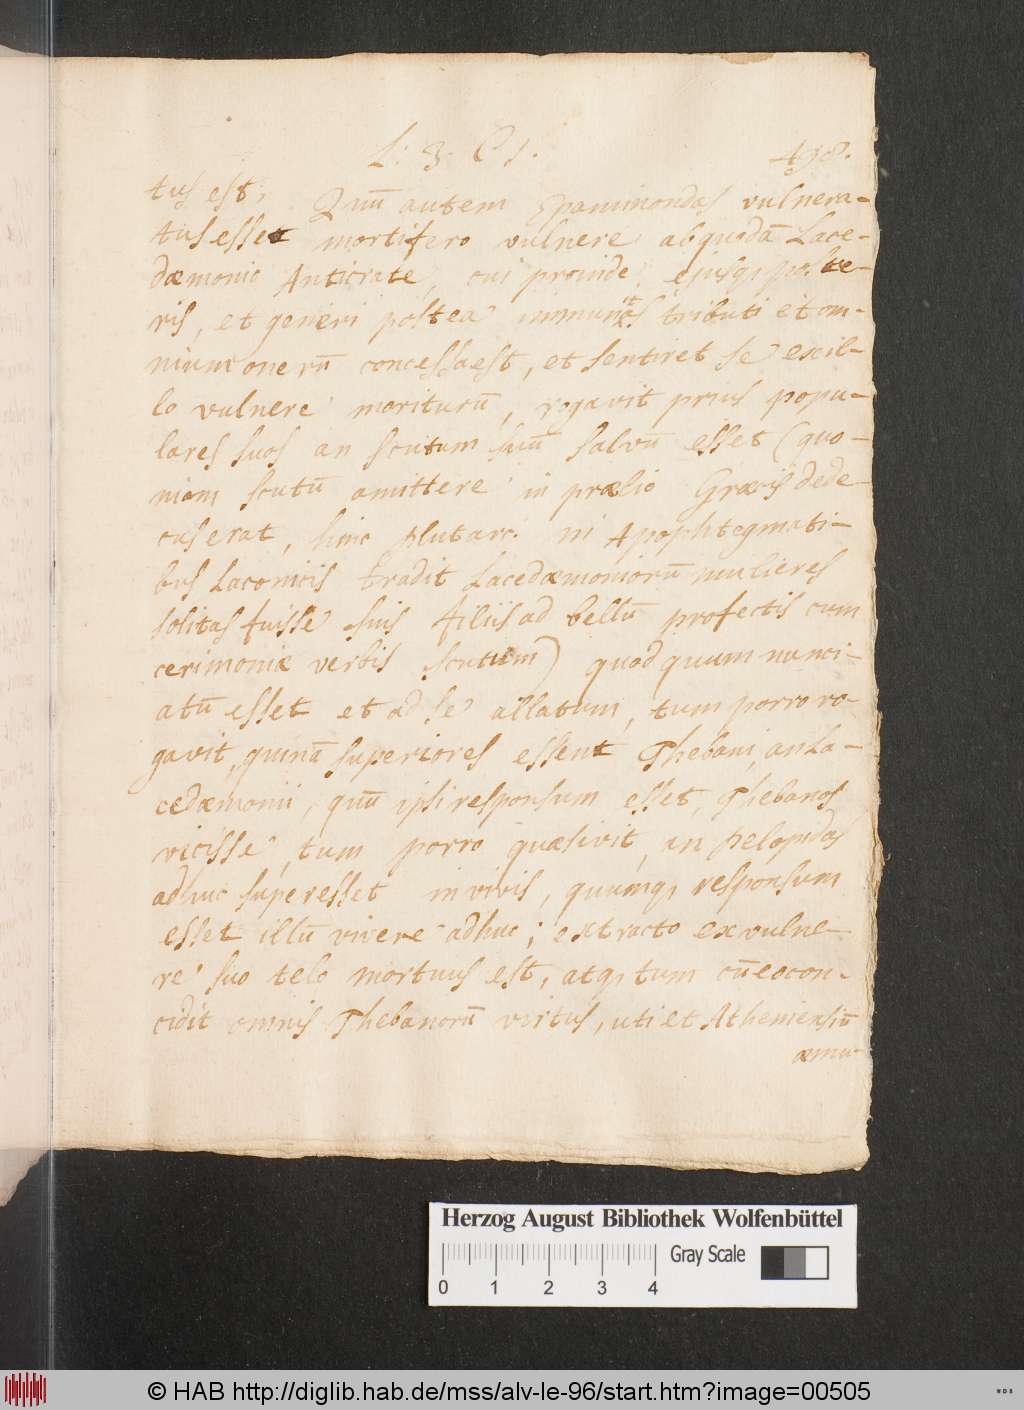 L: 3. C 1. 498.
tus est, Quū autem Epaminondas vulnera-
tus esset mortifero vulnere ab quodā Lace-
dæmonio Anticrate, cui proinde, ejusq; poste-
ris, et generi postea immunitas tributi et om-
nium onerū concessa est, et sentiret se ex il-
lo vulnere moriturū, rogavit prius popu-
lares suos an scutum suū salvū esset (quo-
niam scutū amittere in prælio Græcis dede-
cus erat, hinc Plutarc. in Apophtegmati-
bus Laconicis tradit Lacedæmoniorū mulieres
solitas fuisse suis filiis ad bellū profectis cum
cerimoniæ verbis scutum) quod quum nunci-
atū esset et ad se allatum, tum porro ro-
gavit, quinā superiores essent Thebani, an La-
cedæmonii, quū ipsi responsum esset, Thebanos
vicisse, tum porro quæsivit, an Pelopidas
adhuc superesset in vivis, quumq; responsum
esset illū vivere adhuc; extracto ex vulne-
re suo telo mortuus est, atq; tum cū eo con-
cidit omnis Thebanorū virtus, uti et Atheniensiū
æmu-
Herzog August Bibliothek Wolfenbüttel
Gray Scale
0 1 2 3 4
© HAB http://diglib.hab.de/mss/alv-le-96/start.htm?image=00505